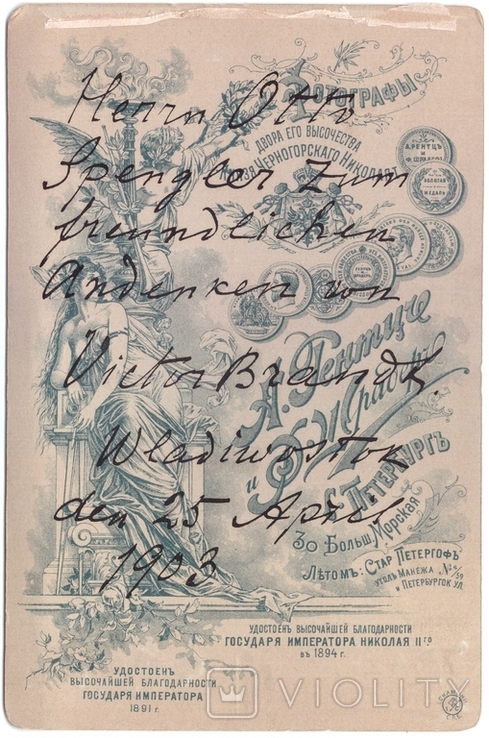 Herrn Otto
Spengler zum
freundlichen
Andenken von
Victor Brandt.
Wladiwostok
den 25 April
1903
Фотографы
ДВОРА ЕГО ВЫСОЧЕСТВА
КНЯЗЯ ЧЕРНОГОРСКАГО НИКОЛАЯ
А. Рентцъ
и Ф. Шрадеръ
С. ПЕТЕРБУРГЪ
30 Больш. Морская
Лѣтомъ: Стар. Петергофъ
уголъ Манежа
и Петербургск. ул.
УДОСТОЕНЪ ВЫСОЧАЙШЕЙ БЛАГОДАРНОСТИ
ГОСУДАРЯ ИМПЕРАТОРА НИКОЛАЯ IIго
въ 1894 г.
УДОСТОЕНЪ
ВЫСОЧАЙШЕЙ БЛАГОДАРНОСТИ
ГОСУДАРЯ ИМПЕРАТОРА
1891 г.
VIOLITY